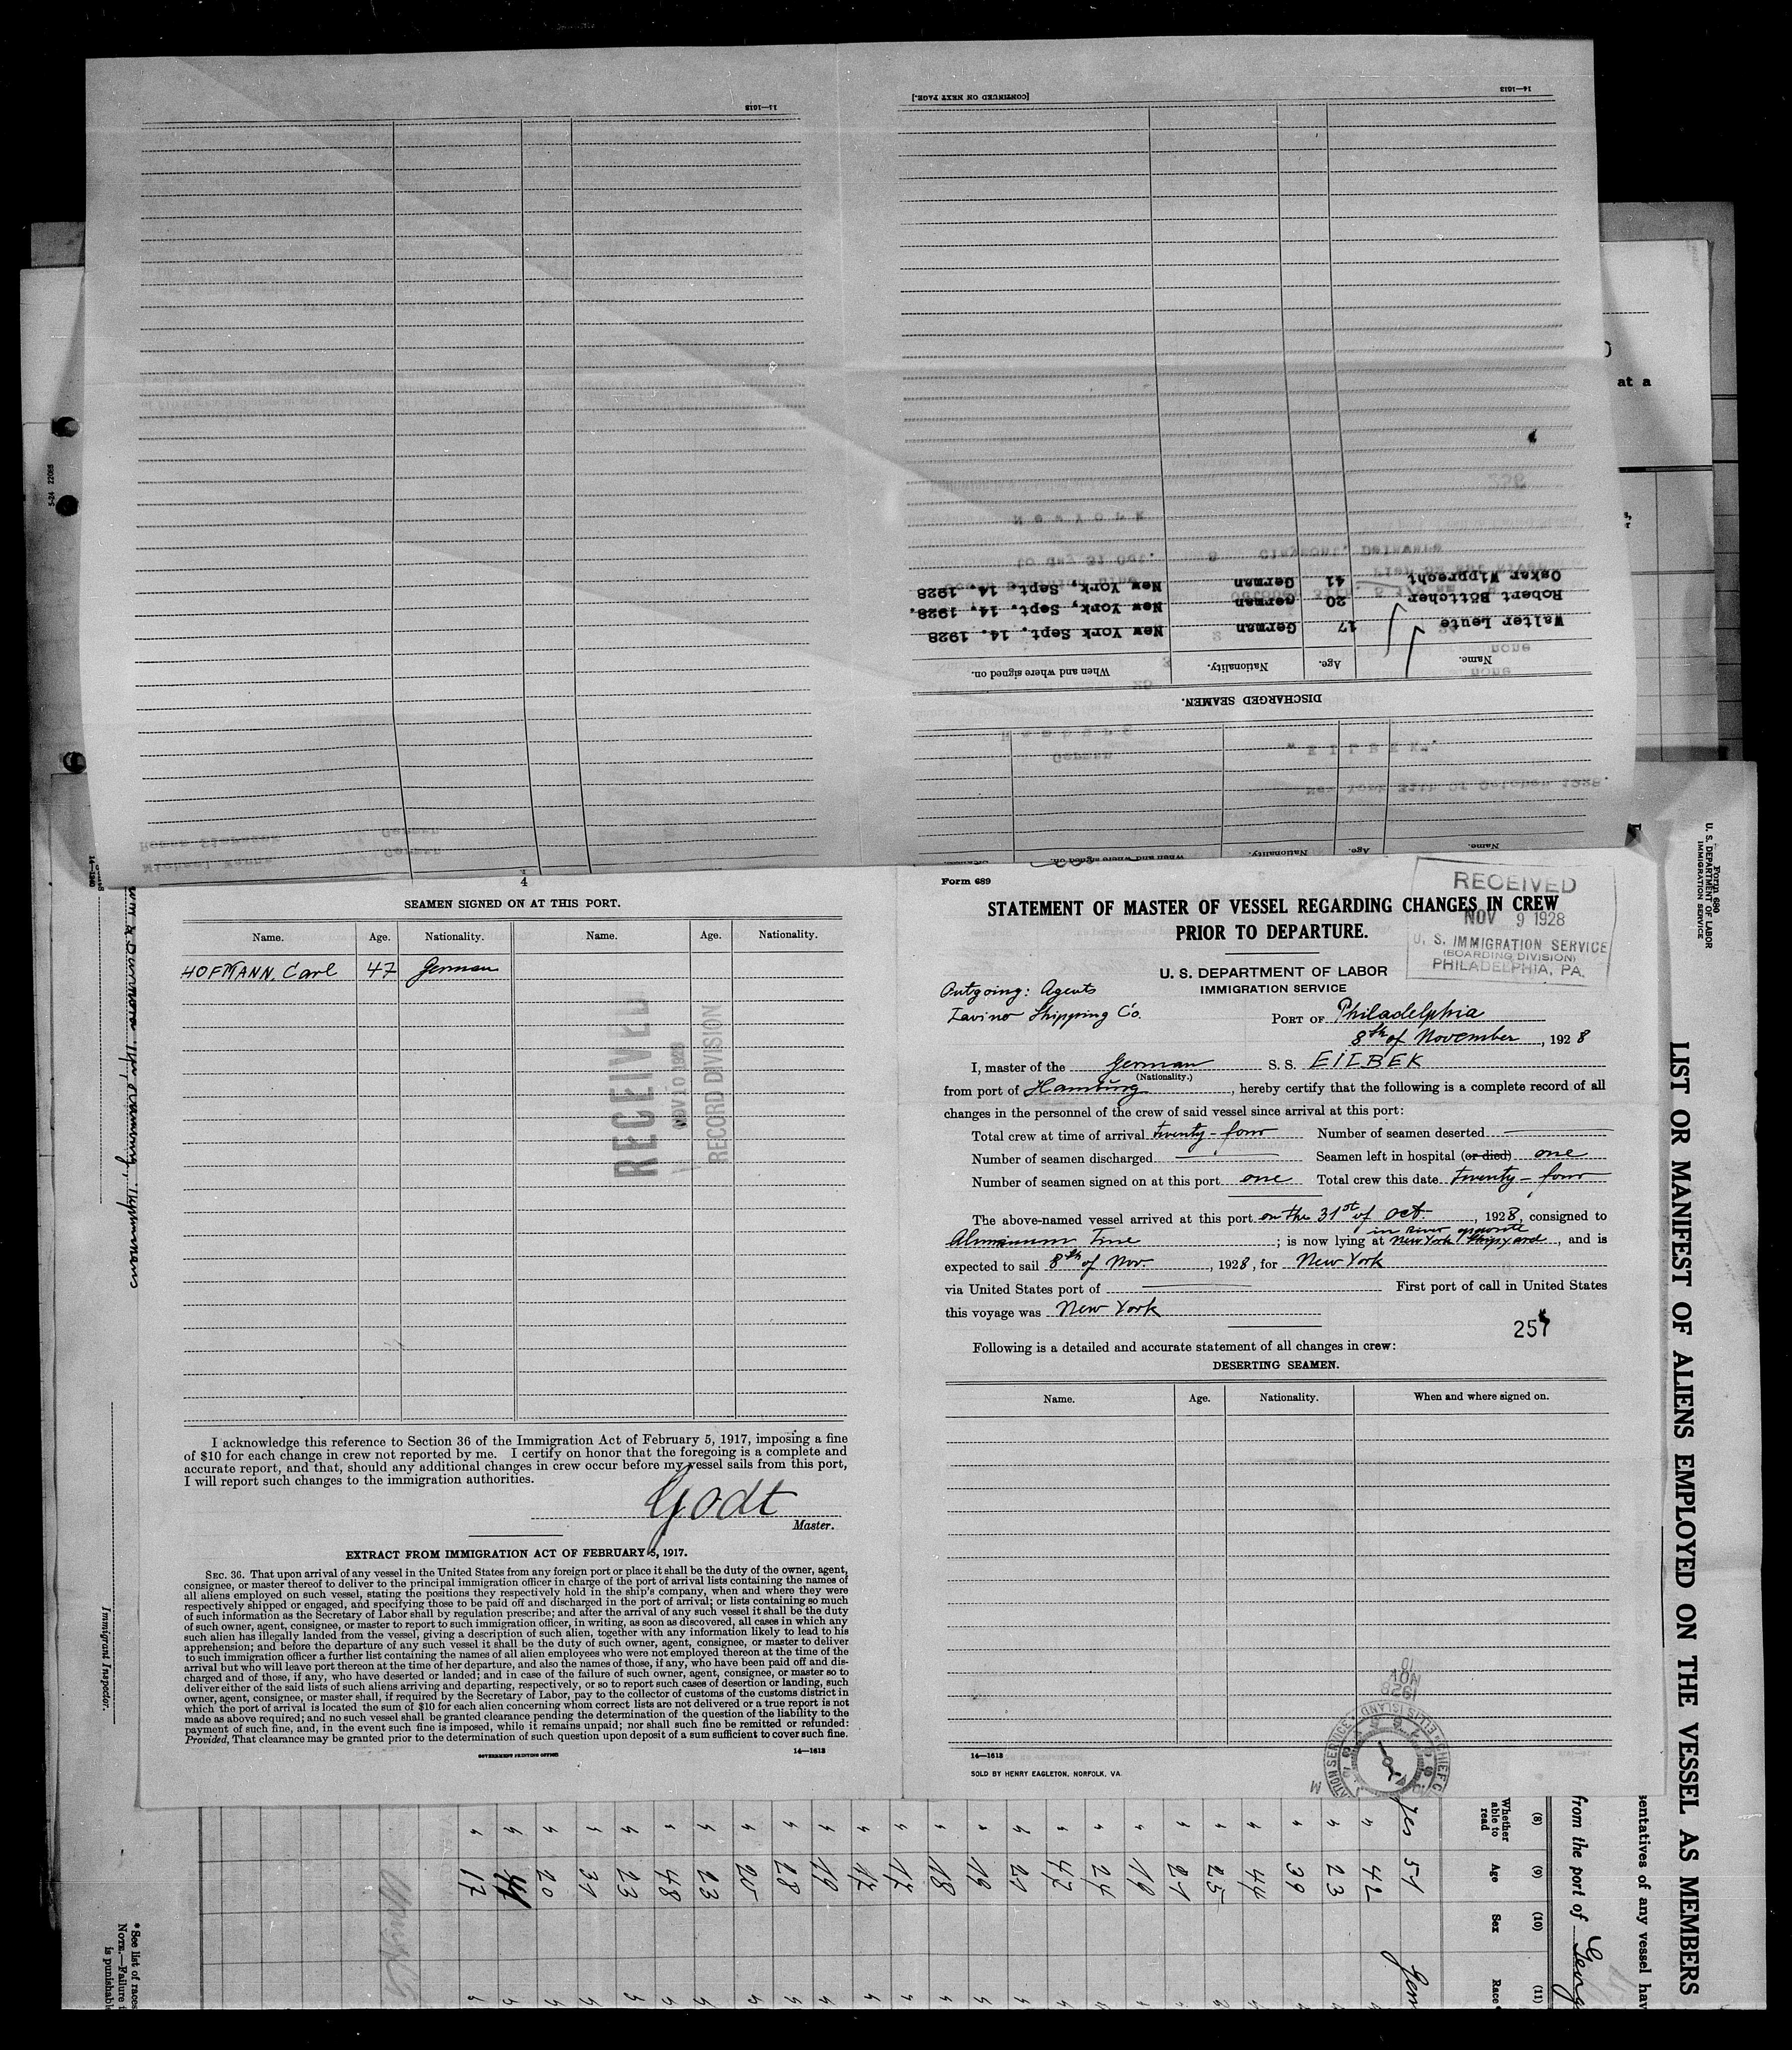 14—1613
[CONTINUED ON NEXT PAGE.]
11—1613
Oskar Wipprecht 41 German New York, Sept. 14. 1928
Robert Böttcher 20 German New York, Sept. 14, 1928.
Walter Leute 17 German New York Sept. 14. 1928
Name. Age. Nationality. When and where signed on.
DISCHARGED SEAMEN.
Name. Age. Nationality. When and where signed on.
at a
5-24 22085
14—1240
4
SEAMEN SIGNED ON AT THIS PORT.
Name. Age. Nationality. Name. Age. Nationality.
HOFMANN, Carl 47 German
RECEIVED
NOV 10 1928
RECORD DIVISION
I acknowledge this reference to Section 36 of the Immigration Act of February 5, 1917, imposing a fine
of $10 for each change in crew not reported by me. I certify on honor that the foregoing is a complete and
accurate report, and that, should any additional changes in crew occur before my vessel sails from this port,
I will report such changes to the immigration authorities.
Godt
Master.
EXTRACT FROM IMMIGRATION ACT OF FEBRUARY 5, 1917.
SEC. 36. That upon arrival of any vessel in the United States from any foreign port or place it shall be the duty of the owner, agent,
consignee, or master thereof to deliver to the principal immigration officer in charge of the port of arrival lists containing the names of
all aliens employed on such vessel, stating the positions they respectively hold in the ship's company, when and where they were
respectively shipped or engaged, and specifying those to be paid off and discharged in the port of arrival; or lists containing so much
of such information as the Secretary of Labor shall by regulation prescribe; and after the arrival of any such vessel it shall be the duty
of such owner, agent, consignee, or master to report to such immigration officer, in writing, as soon as discovered, all cases in which any
such alien has illegally landed from the vessel, giving a description of such alien, together with any information likely to lead to his
apprehension; and before the departure of any such vessel it shall be the duty of such owner, agent, consignee, or master to deliver
to such immigration officer a further list containing the names of all alien employees who were not employed thereon at the time of the
arrival but who will leave port thereon at the time of her departure, and also the names of those, if any, who have been paid off and dis-
charged and of those, if any, who have deserted or landed; and in case of the failure of such owner, agent, consignee, or master so to
deliver either of the said lists of such aliens arriving and departing, respectively, or so to report such cases of desertion or landing, such
owner, agent, consignee, or master shall, if required by the Secretary of Labor, pay to the collector of customs of the customs district in
which the port of arrival is located the sum of $10 for each alien concerning whom correct lists are not delivered or a true report is not
made as above required; and no such vessel shall be granted clearance pending the determination of the question of the liability to the
payment of such fine, and, in the event such fine is imposed, while it remains unpaid; nor shall such fine be remitted or refunded:
Provided, That clearance may be granted prior to the determination of such question upon deposit of a sum sufficient to cover such fine.
GOVERNMENT PRINTING OFFICE 14—1613
Form 689
STATEMENT OF MASTER OF VESSEL REGARDING CHANGES IN CREW
PRIOR TO DEPARTURE.
RECEIVED
NOV 9 1928
U. S. IMMIGRATION SERVICE
(BOARDING DIVISION)
PHILADELPHIA, PA.
U. S. DEPARTMENT OF LABOR
IMMIGRATION SERVICE
Outgoing: Agents
Lavino Shipping Co.
PORT OF Philadelphia
8th of November, 1928
I, master of the German S. S. EILBEK
(Nationality.)
from port of Hamburg, hereby certify that the following is a complete record of all
changes in the personnel of the crew of said vessel since arrival at this port:
Total crew at time of arrival twenty-four Number of seamen deserted
Number of seamen discharged Seamen left in hospital (or died) one
Number of seamen signed on at this port one Total crew this date twenty-four
The above-named vessel arrived at this port on the 31st of Oct., 1928, consigned to
in river opposite
Aluminum Line; is now lying at New York Shipyard, and is
expected to sail 8th of Nov., 1928, for New York
via United States port of First port of call in United States
this voyage was New York
257
Following is a detailed and accurate statement of all changes in crew:
DESERTING SEAMEN.
Name. Age. Nationality. When and where signed on.
1928
NOV
10
14—1613
SOLD BY HENRY EAGLETON, NORFOLK, VA.
Form 680
U. S. DEPARTMENT OF LABOR
IMMIGRATION SERVICE
LIST OR MANIFEST OF ALIENS EMPLOYED ON THE VESSEL AS MEMBERS
sentatives of any vessel hav
from the port of Georg
(8) (9) (10) (11)
Whether able to read Age Sex Race*
Yes 51 Germ
42
23
39
44
25
21
19
24
42
21
19
18
17
17
19
28
20
23
48
23
31
20
41
17
Immigrant Inspector.
*See list of races
NOTE.—Failure
is punishabl